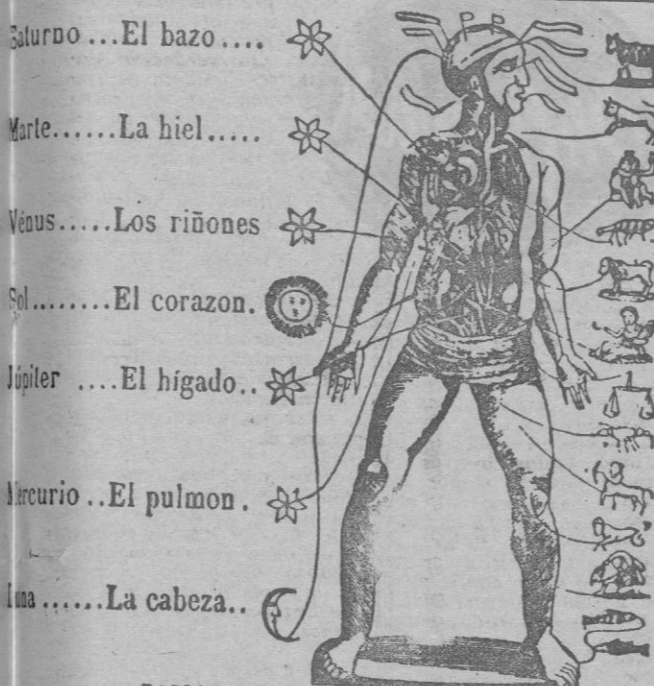 Saturno ...El bazo ....
Marte......La hiel.....
Vénus.....Los riñones
Sol........El corazon.
Júpiter ....El hígado..
Mercurio ..El pulmon.
Luna ......La cabeza..